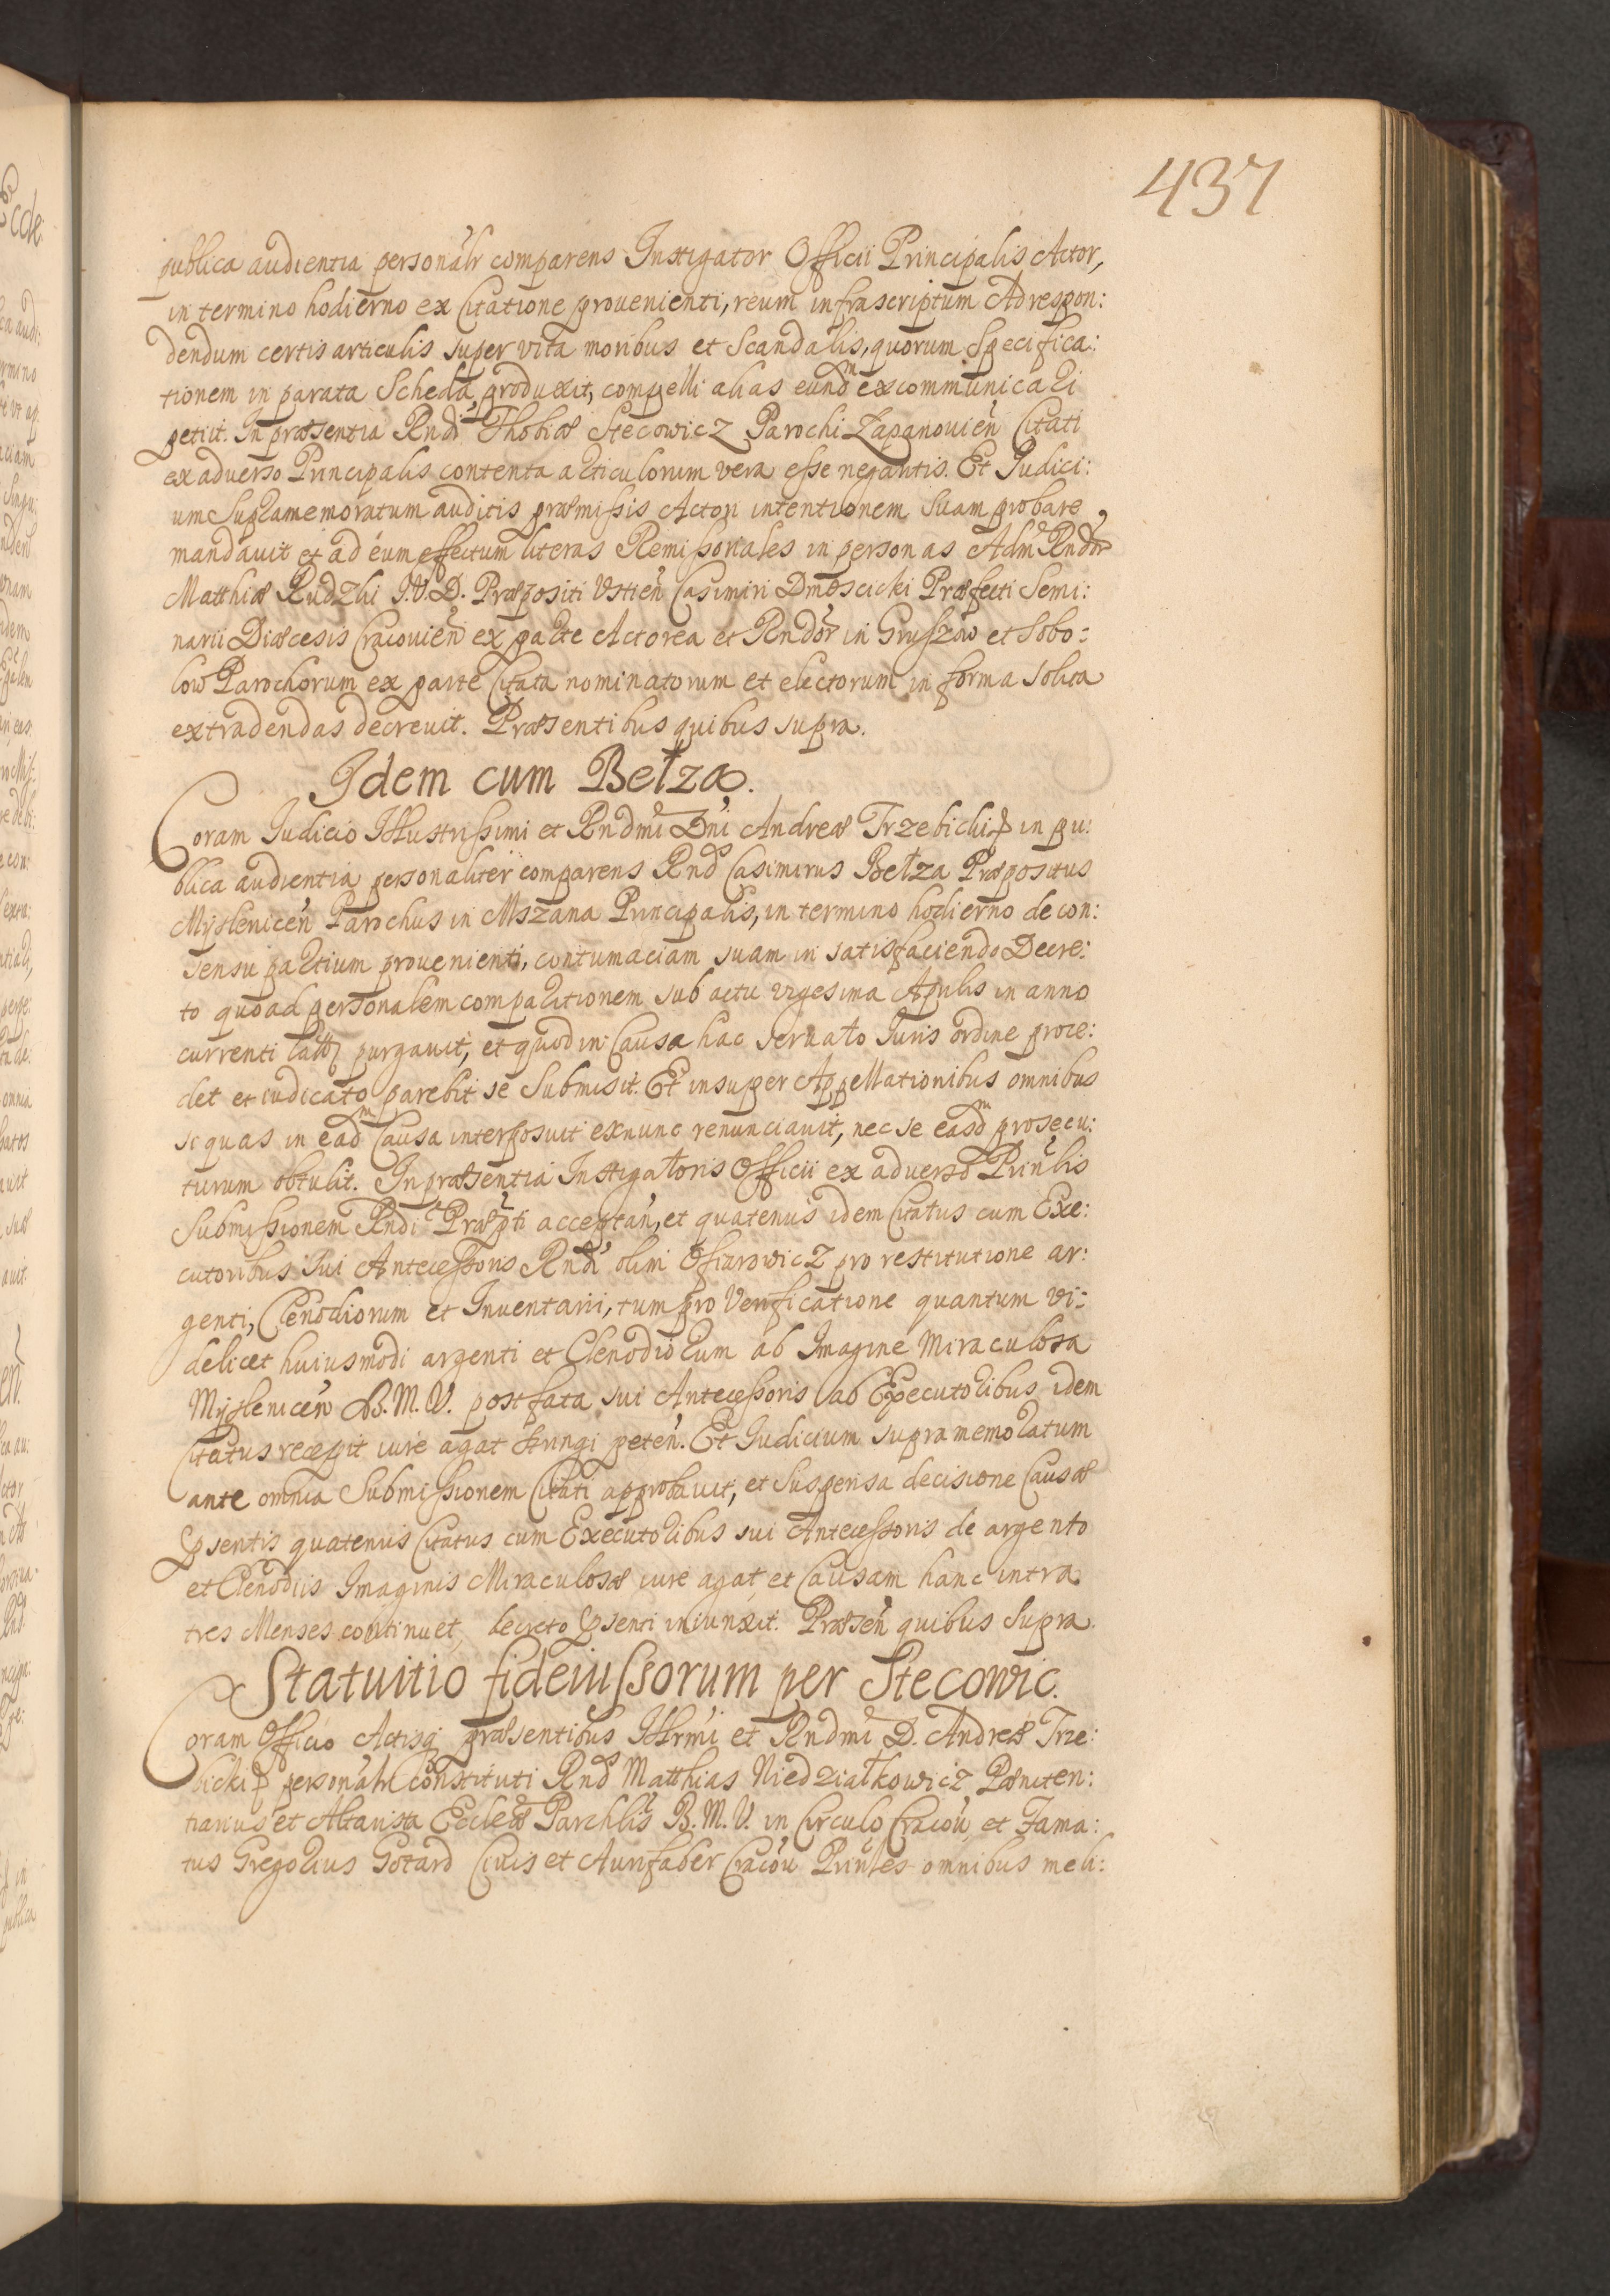 437
publica audientia personalr comparens Instigator Officii Principalis Actor,
in termino hodierno ex Citatione provenienti, reum infrascriptum Ad respon:
dendum certis articulis super vita moribus et Scandalis, quorum Specifica:
tionem in parata Scheda produxit, compelli alias eundm excommunicari
petiit. In præsentia Rndi Thobiæ Stecowicz Parochi Łapanovien Citati
ex adverso Principalis contenta articulorum vera esse negantis. Et Judici:
um Supramemoratum auditis præmissis Actori intentionem suam probare
mandavit et ad eum effectum literas Remissoriales in personas Adm Rndor
Matthiæ Rudzki J.V.D. Præpositi Ustien Casimiri Dmoscicki Præfecti Semi:
narii Diæcesis Cracovien ex parte Actorea et Rndor in Gruszow et Sobo:
low Parochorum ex parte Citata nominatorum et electorum in forma solita
extradendas decrevit. Præsentibus quibus supra.
Idem cum Bełza.
Coram Judicio Illustrissimi et Rndmi Dni Andreæ Trzebicki in pu:
blica audientia personaliter comparens Rnds Casimirus Bełza Præpositus
Myslenicen Parochus in Mszana Principalis, in termino hodierno de con:
sensu partium provenienti, contumaciam suam in satisfaciendo Decre:
to quoad personalem comparitionem sub actu vigesima Aprilis in anno
currenti purgavit, et quod in Causa hac servato Juris ordine proce:
det et iudicato parebit se Submisit. Et insuper Appellationibus omnibus
si quas in eadm Causa interposuit exnunc renunciavit, nec se easdm prosecu:
turum obtulit. In præsentia Instigatoris Officii ex adverso Prinlis
Submissionem Rndi Præpti acceptan, et quatenus idem Citatus cum Exe:
cutoribus sui Antecessoris Rndi olim Ofiarowicz pro restitutione ar:
genti, Clenodiorum et Inventarii, tum pro Verificatione quantum vi:
delicet huiusmodi argenti et Clenodiorum ab Imagine Miraculosa
Myslenicen B.M.V. post fata sui Antecessoris ab Executoribus idem
Citatus recepit iure agat stringi peten. Et Judicium supramemoratum
ante omnia Submissionem Citati approbavit, et Suspensa decisione Causæ
psentis quatenus Citatus cum Executoribus sui Antecessoris de argento
et Clenodiis Imaginis Miraculosæ iure agat, et Causam hanc intra
tres Menses continuet, decreto psenti iniunxit. Præsen quibus Supra.
Statuitio fideiussorum per Stecowic.
Coram Officio Actisq præsentibus Illrmi et Rndmi D. Andreæ Trze:
bicki personalr constituti Rnds Matthias Niedziałkowicz Pæniten:
tiarius et Altarista Eccleæ Parchlis B.M.V. in Circulo Cracov, et Fama:
tus Gregorius Gotard Civis et Aurifaber Cracov Prinles omnibus meli: